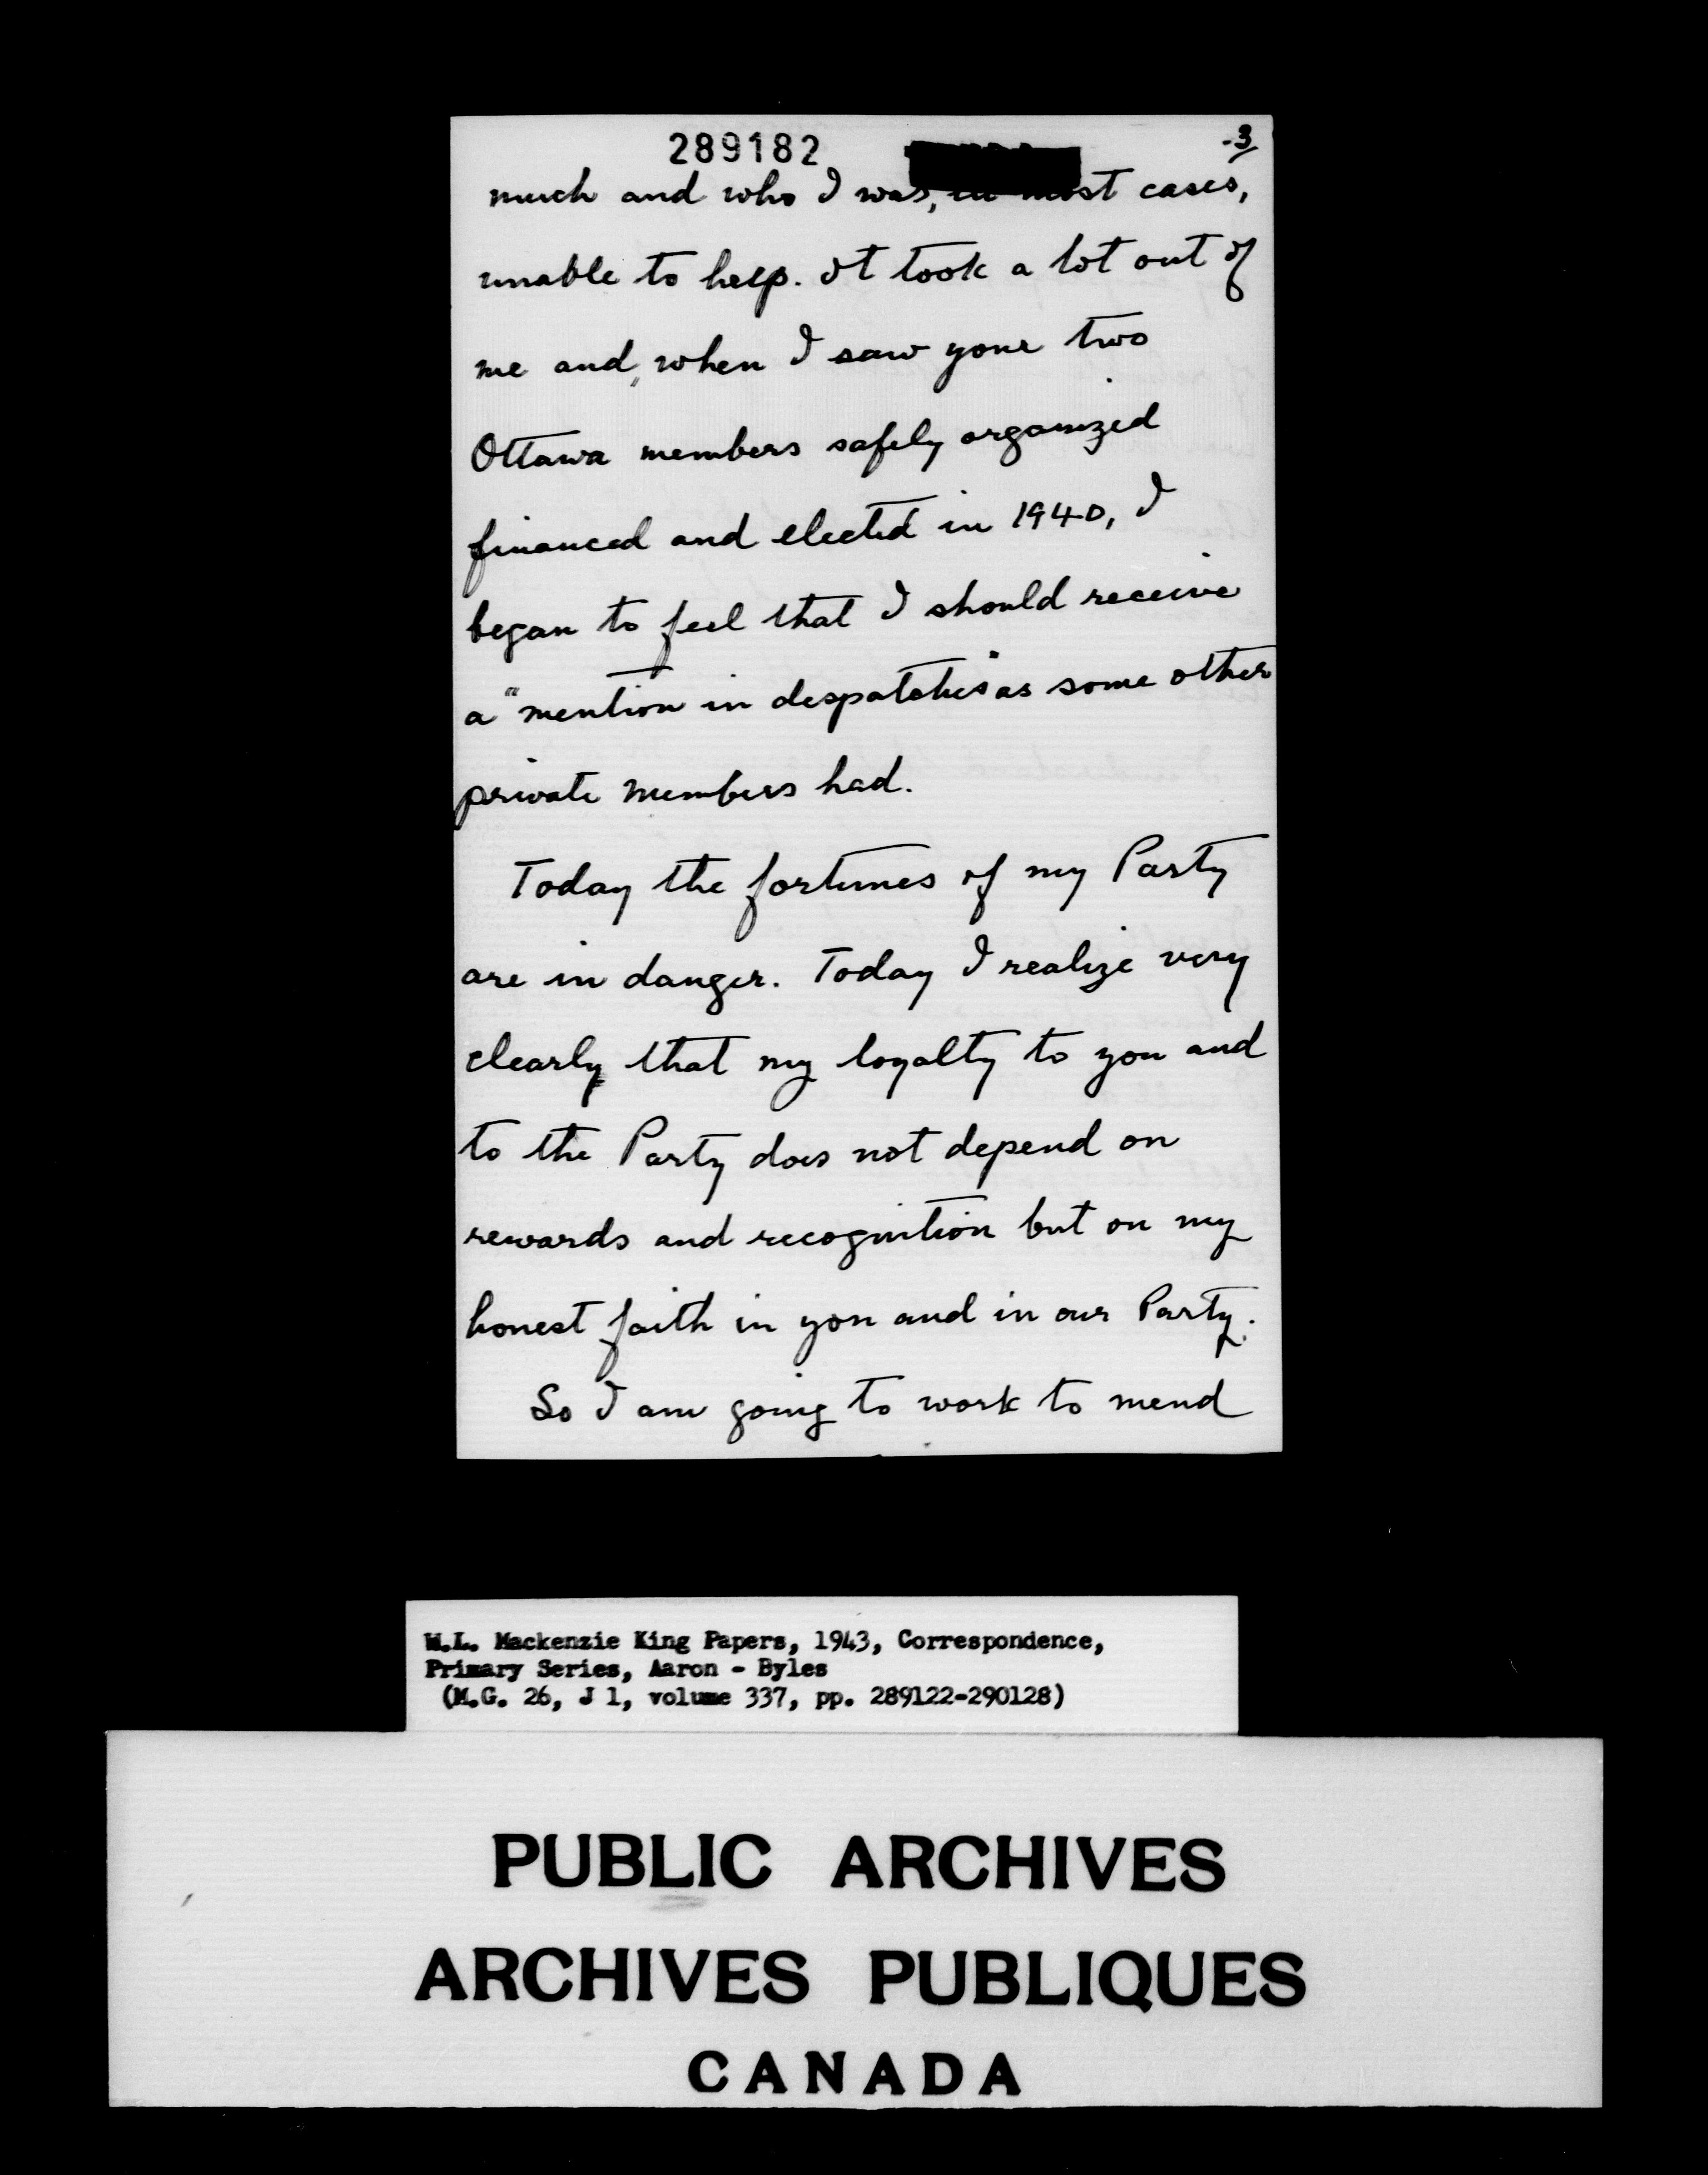 289182
-3
much and who I was, in most cases,
unable to help. It took a lot out of
me and, when I saw your two
Ottawa members safely organized
financed and elected in 1940, I
began to feel that I should receive
a "mention in despatches" as some other
private members had.
Today the fortunes of my Party
are in danger. Today I realize very
clearly that my loyalty to you and
to the Party does not depend on
rewards and recognition but on my
honest faith in you and in our Party.
So I am going to work to mend
W.L. Mackenzie King Papers, 1943, Correspondence,
Primary Series, Aaron - Byles
(M.G. 26, J 1, volume 337, pp. 289122-290128)
PUBLIC ARCHIVES
ARCHIVES PUBLIQUES
CANADA